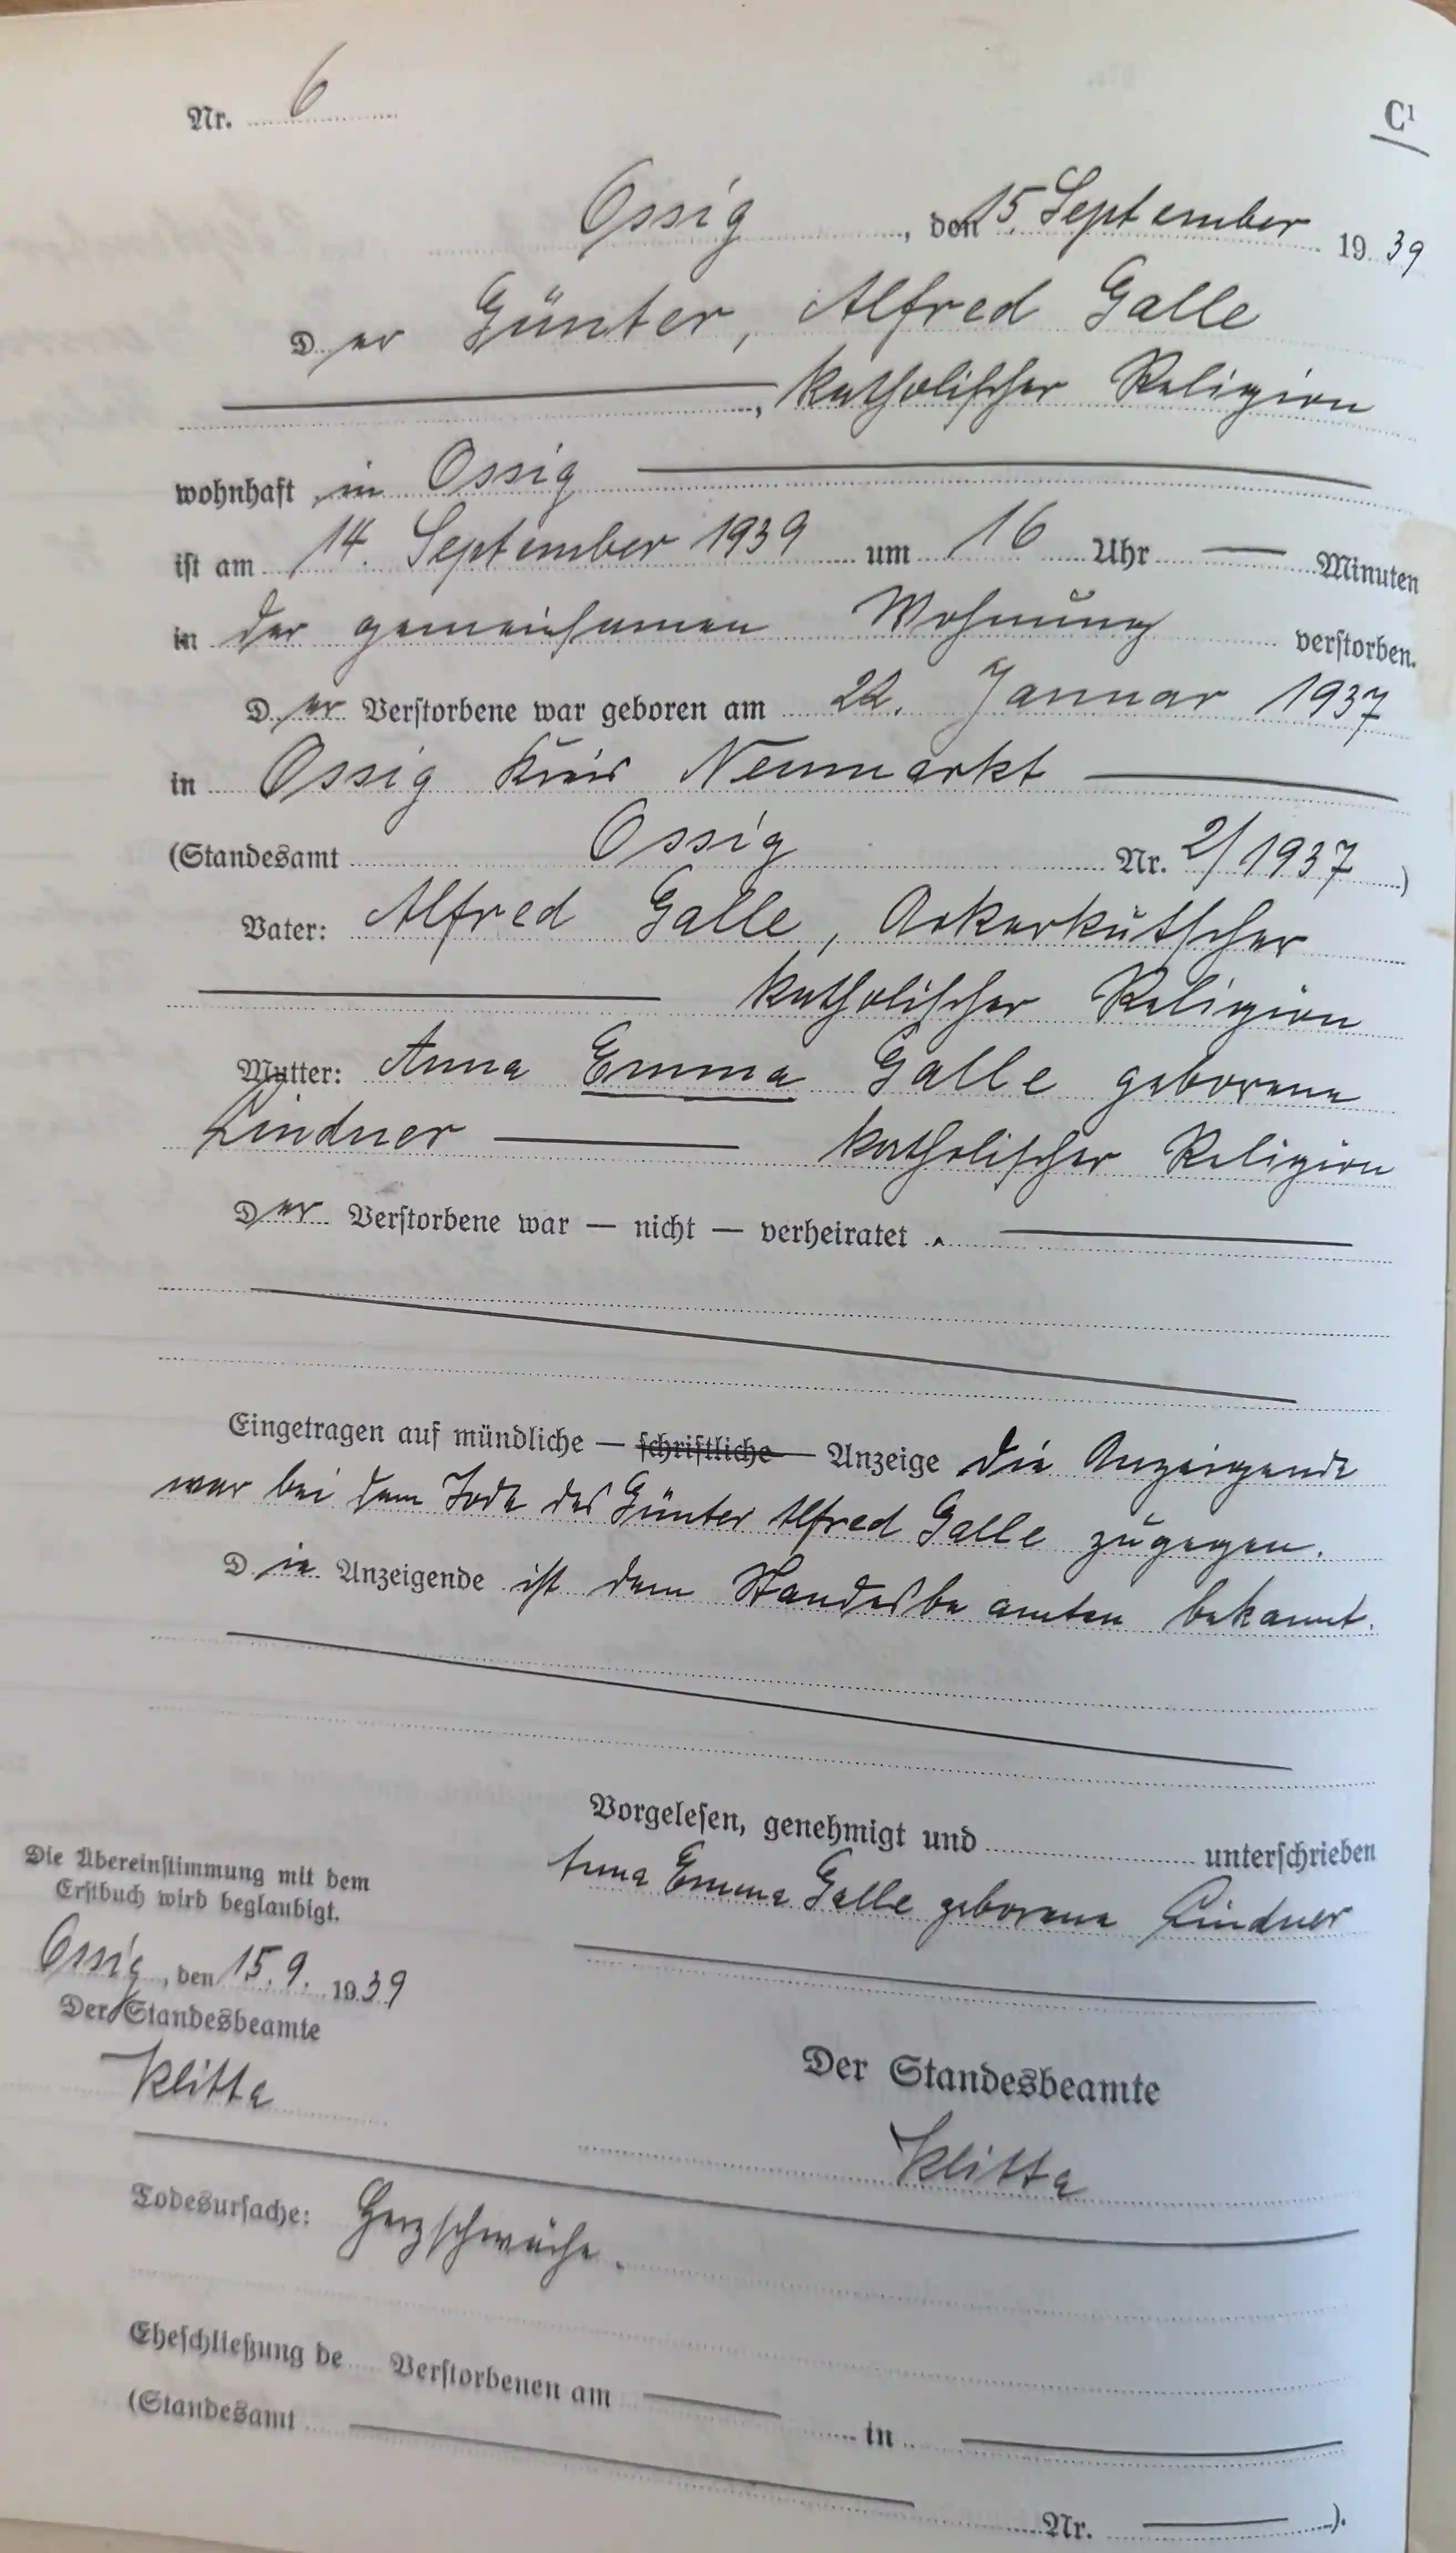 Nr. 6
C¹
Ossig, den 15. September 1939
Der Günter, Alfred Galle
, katholischer Religion
wohnhaft in Ossig
ist am 14. September 1939 um 16 Uhr — Minuten
in der gemeinsamen Wohnung verstorben.
Der Verstorbene war geboren am 22. Januar 1937
in Ossig Kreis Neumarkt
(Standesamt Ossig Nr. 2/1937)
Vater: Alfred Galle, Ackerkutscher
katholischer Religion
Mutter: Anna Emma Galle geborene
Lindner — katholischer Religion
Der Verstorbene war — nicht — verheiratet.
Eingetragen auf mündliche — schriftliche — Anzeige die Anzeigende
war bei dem Tode des Günter Alfred Galle zugegen.
Die Anzeigende ist dem Standesbeamten bekannt.
Vorgelesen, genehmigt und unterschrieben
Anna Emma Galle geborene Lindner
Die Übereinstimmung mit dem
Erstbuch wird beglaubigt.
Ossig, den 15.9. 1939
Der Standesbeamte
Klitta
Der Standesbeamte
Klitta
Todesursache: Herzschwäche.
Eheschließung de Verstorbenen am — in —
(Standesamt — Nr. —).